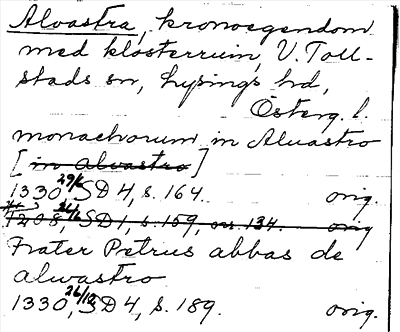 Alvastra, kronoegendom
med klosterruin, V. Toll-
stads sn, Lysings hd,
Österg. l.
monachorum in Aluastro
[in alvastro]
1330 29/6, SD 4, s. 164. orig.
1208, SD 1, s. 159, nr. 134. orig
Frater Petrus abbas de
alwastro
1330, 26/12, SD 4, s. 189. orig.